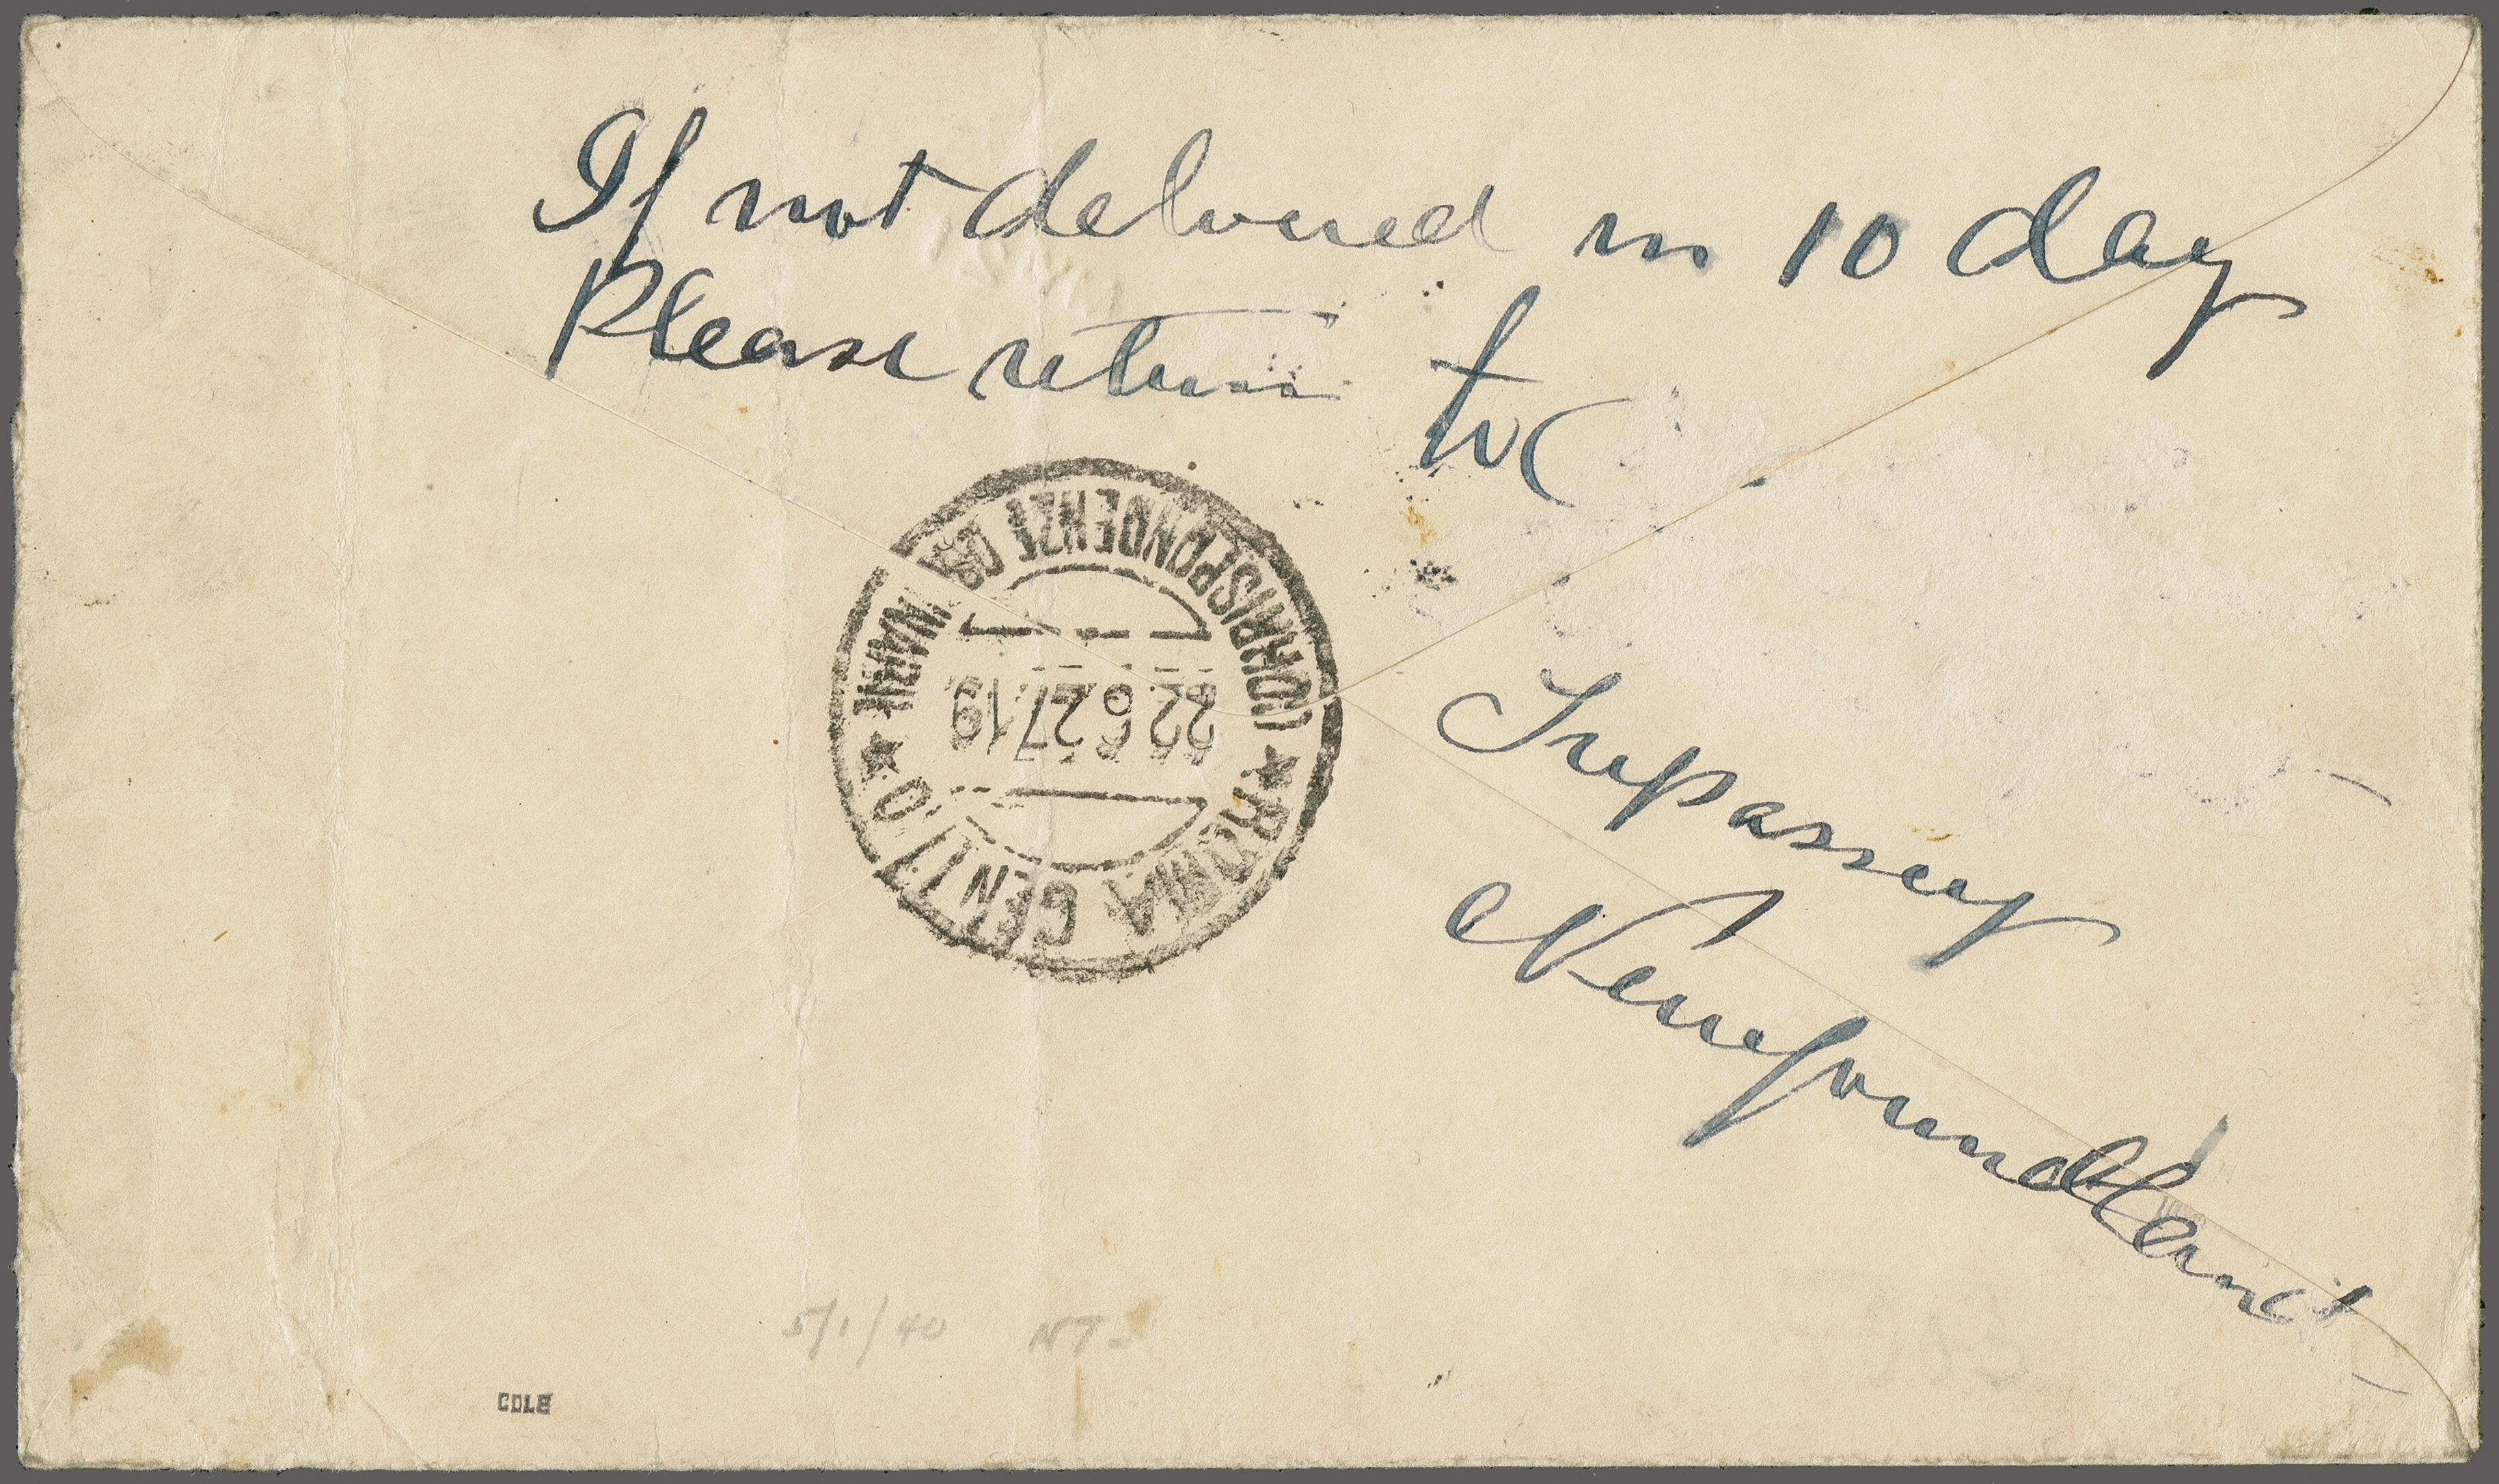 If not delivered in 10 days
Please return to
ROMA CENTRO
CORRISPONDENZE
22.6.27.19
Trepassey
Newfoundland
5/1/40
COLE